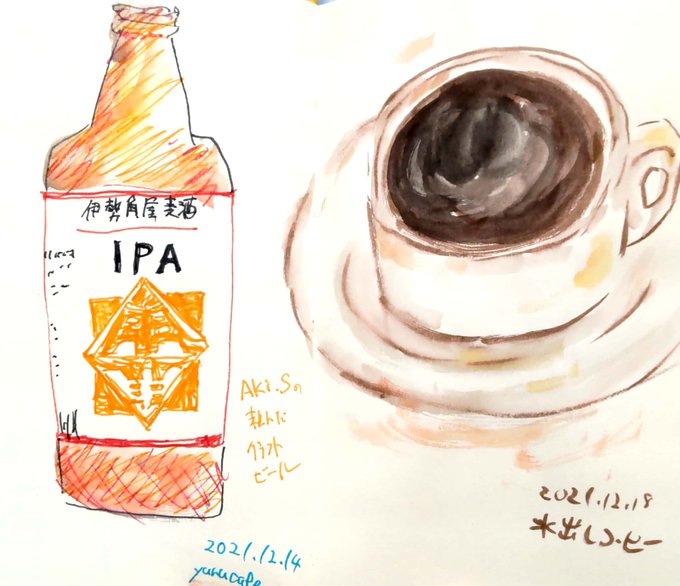 伊勢角屋麦酒
IPA
Aki.Sの
頼んだ
クラフト
ビール
2021.12.14
yurucafe
2021.12.18
水出しコーヒー